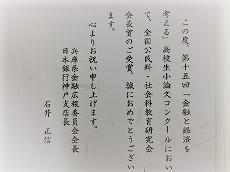 この度、第十五回「金融と経済を
考える」高校生小論文コンクールにおい
て、全国公民科・社会科教育研究会
会長賞のご受賞、誠におめでとうござい
ます。
心よりお祝い申し上げます。
兵庫県金融広報委員会会長
日本銀行神戸支店長
石井 正信